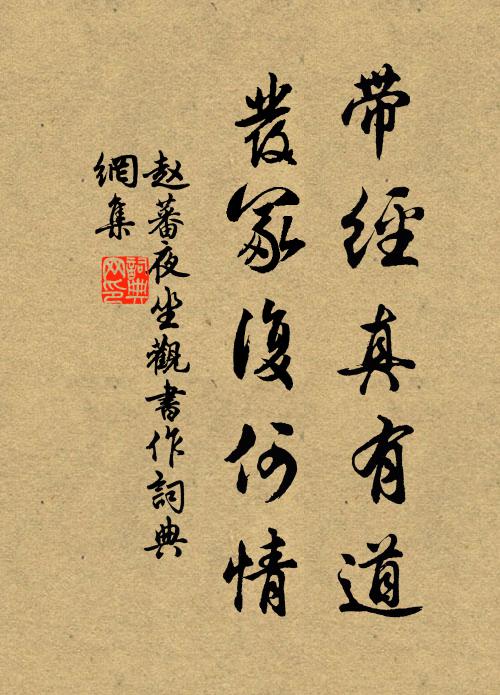 帶經真有道
發冢復何情
赵蕃夜坐觀書作詞典
網集
詞典
网印